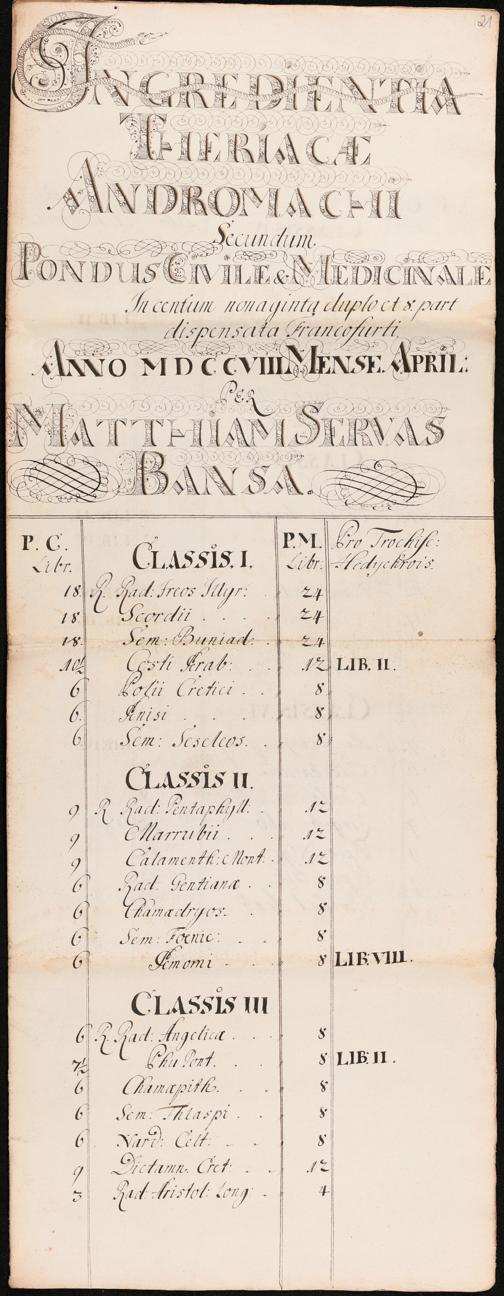 21
INGREDIENTIA
THERIACÆ
ANDROMACHI
Secundum
PONDUS CIVILE & MEDICINALE
In centum nonaginta duplo et 8. part
dispensata Francofurti
ANNO MDCCVIII. MENSE. APRIL:
PER
MATTHIAM SERVAS
BANSA.
P. C. P. M. Pro Trochisc:
Libr. CLASSIS. I. Libr: Hedychrois.
18. R. Rad: Ireos Illyr: 24
18 Scordii . . . . 24
18. Sem: Buniad: . 24
10½ Costi Arab: . 12 LIB. II.
6 Polii Cretici . . 8
6. Anisi . . . . 8
6. Sem: Seseleos. . 8
CLASSIS II.
9 R Rad: Pentaphyll: . 12
9 Marrubii . . . 12
9 Calamenth: Mont. . 12
6 Rad: Gentianæ . . 8
6 Chamædryos. . . 8
6 Sem: Fœnic: . . 8
6 Amomi . . . 8 LIB. VIII.
CLASSIS III
6 R. Rad: Angelicæ . . . 8
7½ Phu Pont. . . 8 LIB. II.
6 Chamæpith. . . . 8
6 Sem: Thlaspi . . . 8
6 Nard: Celt: . . . 8
9 Dictamn. Cret: . . 12
3 Rad Aristol: Long . 4